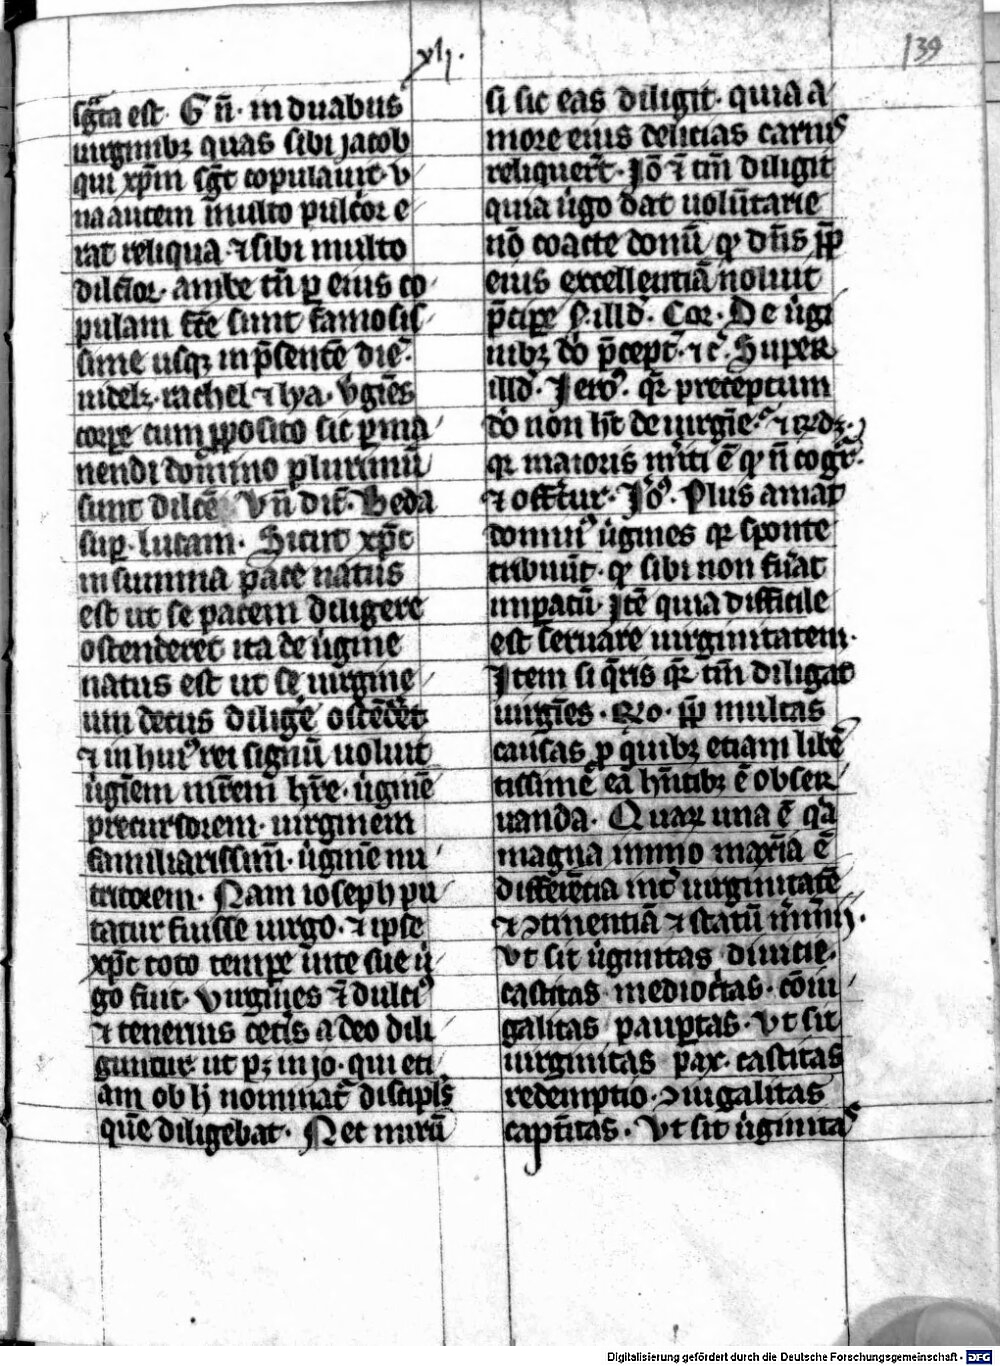 xlj.
139
sg̃ta est. G ñ. in duabus
uirginibꝫ quas sibi jacob
qui xp̃m sg̃t copulauit. v
na autem m̃ulto pulc̃or e
rat reliqua. ⁊ sibi multo
dilc̃ior. ambe tñ ꝑ eius co
pulam fc̃e sunt famosis
sime usqꝫ in p̃sentē diē.
uidelꝫ. rachel ⁊ lya. v̾gīes
corꝑe cum ꝓposito sic ꝑma
nendi domino plurimū
sunt dilc̃e Vñ dic̃. Beda
suꝑ. lucam. Sicut xp̃c
in summa pace natus
est ut se pacem diligere
ostenderet ita de u̾gine
natus est ut se uirgine
um decus diligē ostēdet
⁊ in huiꝰ rei signū uoluit
u̾giēm mr̃em hr̃e. u̾ginē
precursorem. uirginem
familiarissim̄. u̾ginē nu
tritorem. Nam ioseph pu
tatur fuisse uirgo. ⁊ ipse
xp̃c toto tempe uite sue u̾
go fuit. Virgines ⁊̄ dulciꝰ
⁊ tenerius cet̾is adeo dili
guntur ut pꝫ in jo. qui eti
am ob h̾ nominat̾ discipls
quē diligebat. Nec mirū
si sic eas diligit. quia a
more eius delicias carnis
reliquer̃t. Jō ⁊̄ tm̄ diligit
quia u̾go dat uolūtarie
nō coacte donū qꝫ dñs ꝓp̃
eius excellentiā noluit
p̃cipe s. illd̾. Cor. De u̾gi
nibꝫ do p̃cept̾. ⁊ c̃. Super
illd̾. Jeroꝰ. qr̃ preceptum
do non ht̃ de uirgīe.
qr̃ maioris mr̃iti ē qꝫ ñ cogit̾.
⁊ offert̾ur. Joꝰ. Plus amat
dominꝰ u̾gines qr̃ sponte
tribuūt. qꝫ sibi non fuat
impatū. Itē quia difficile
est seruare uirginitatem.
Item si q̾ris qr̃ tm̄ diligat
uirgīes. Ro. ꝓp̃ multas
causas ꝑ quibꝫ etiam libē
tissime ea hñtibꝫ ē obser
uanda. Quaꝝ una ē qꝛ
magna immo maxīa ē
differētia int̾ uirginitatē
⁊ ꝯtinentiā ⁊ statū
Vt sit u̾ginitas diuicie.
castitas mediocritas. cōiu
galitas paup̃tas. Vt sit
uirginitas pax. castitas
redemptio. ꝯiugalitas
captītas. Vt sit u̾ginitas
Digitalisierung gefördert durch die Deutsche Forschungsgemeinschaft - DFG